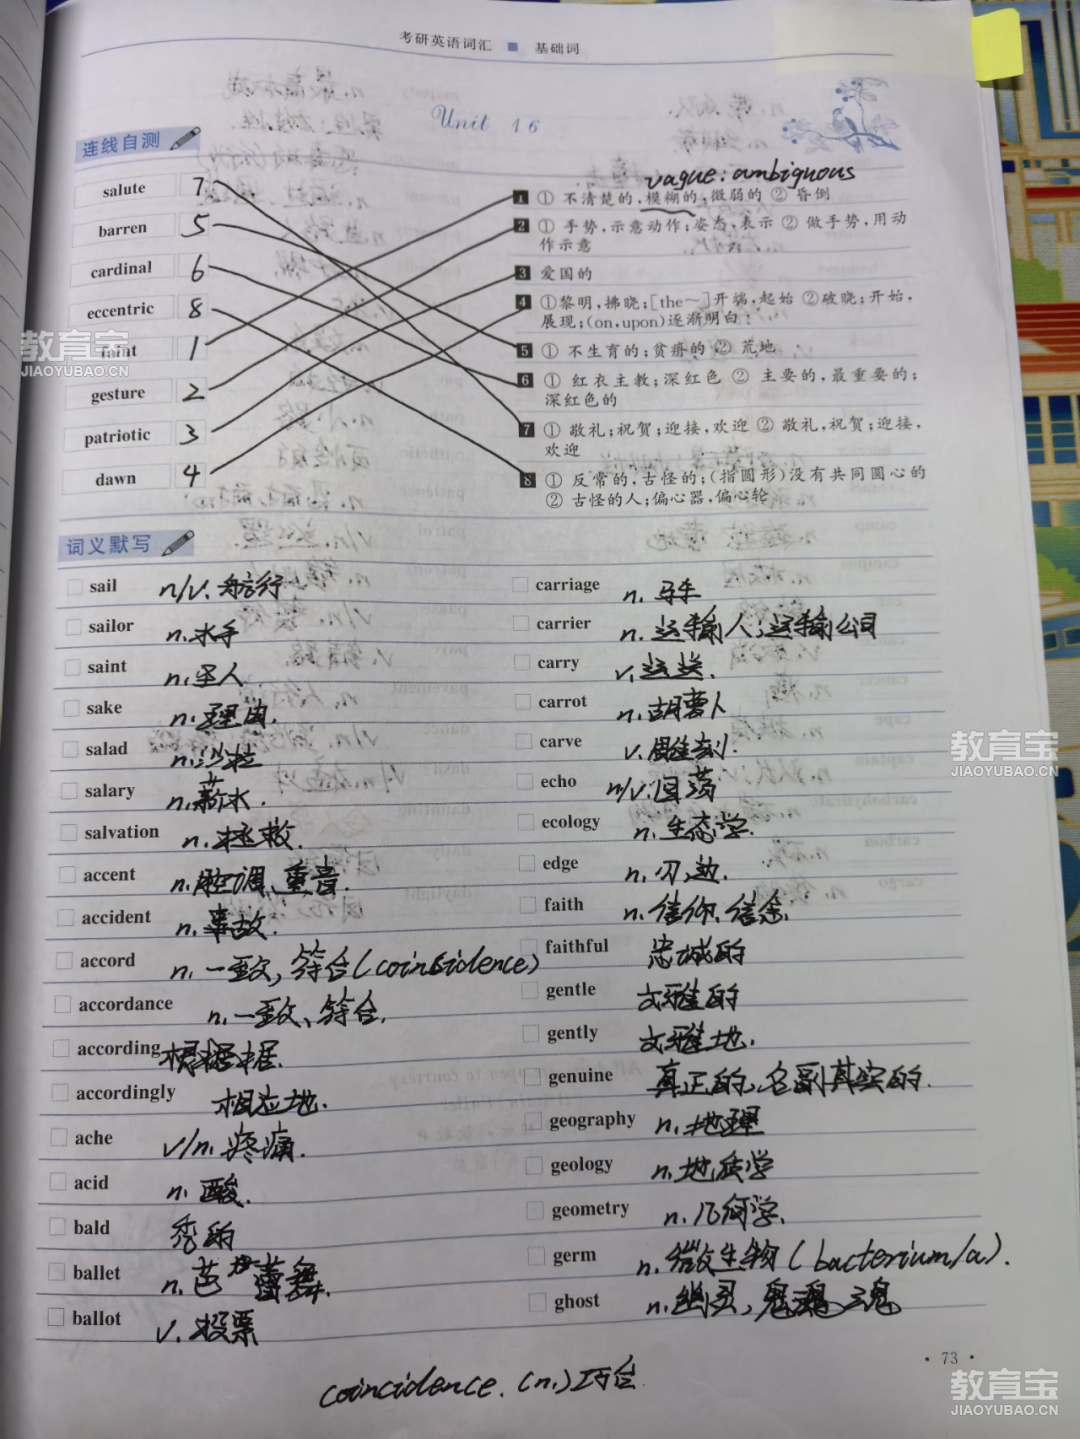 考研英语词汇 ■ 基础词
Unit 16
连线自测
vague: ambiguous
salute 7
barren 5
cardinal 6
eccentric 8
faint 1
gesture 2
patriotic 3
dawn 4
1 ① 不清楚的,模糊的,微弱的 ② 昏倒
2 ① 手势,示意动作;姿态,表示 ② 做手势,用动
作示意
3 爱国的
4 ①黎明,拂晓;[the~]开端,起始 ②破晓;开始,
展现;(on,upon)逐渐明白:
5 ① 不生育的;贫瘠的 ② 荒地
6 ① 红衣主教;深红色 ② 主要的,最重要的;
深红色的
7 ① 敬礼;祝贺;迎接,欢迎 ② 敬礼,祝贺;迎接,
欢迎
8 ① 反常的,古怪的;(指圆形)没有共同圆心的
② 古怪的人;偏心器,偏心轮
词义默写
sail n/v. 航行
sailor n. 水手
saint n. 圣人
sake n. 理由.
salad n. 沙拉
salary n. 薪水.
salvation n. 拯救.
accent n. 腔调、重音.
accident n. 事故.
accord n. 一致, 符合(coinsidence)
accordance n. 一致、符合.
according 根据.
accordingly 相应地.
ache v/n. 疼痛.
acid n. 酸.
bald 秃的
ballet n. 芭蕾舞.
ballot v. 投票
carriage n. 马车
carrier n. 运输人;运输公司
carry v. 运送.
carrot n. 胡萝卜
carve v. 雕刻.
echo n/v. 回荡
ecology n. 生态学.
edge n. 刃,边.
faith n. 信仰、信念.
faithful 忠诚的
gentle 文雅的
gently 文雅地.
genuine 真正的,名副其实的.
geography n. 地理
geology n. 地质学
geometry n. 几何学.
germ n. 微生物(bacterium/a).
ghost n. 幽灵, 鬼魂
coincidence. (n.)巧合
· 73 ·
教育宝
JIAOYUBAO.CN
教育宝
JIAOYUBAO.CN
教育宝
JIAOYUBAO.CN